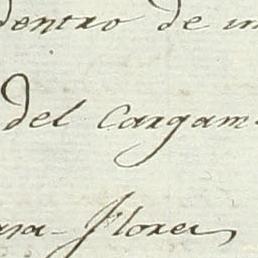 dentro de
del Cargam
Flores